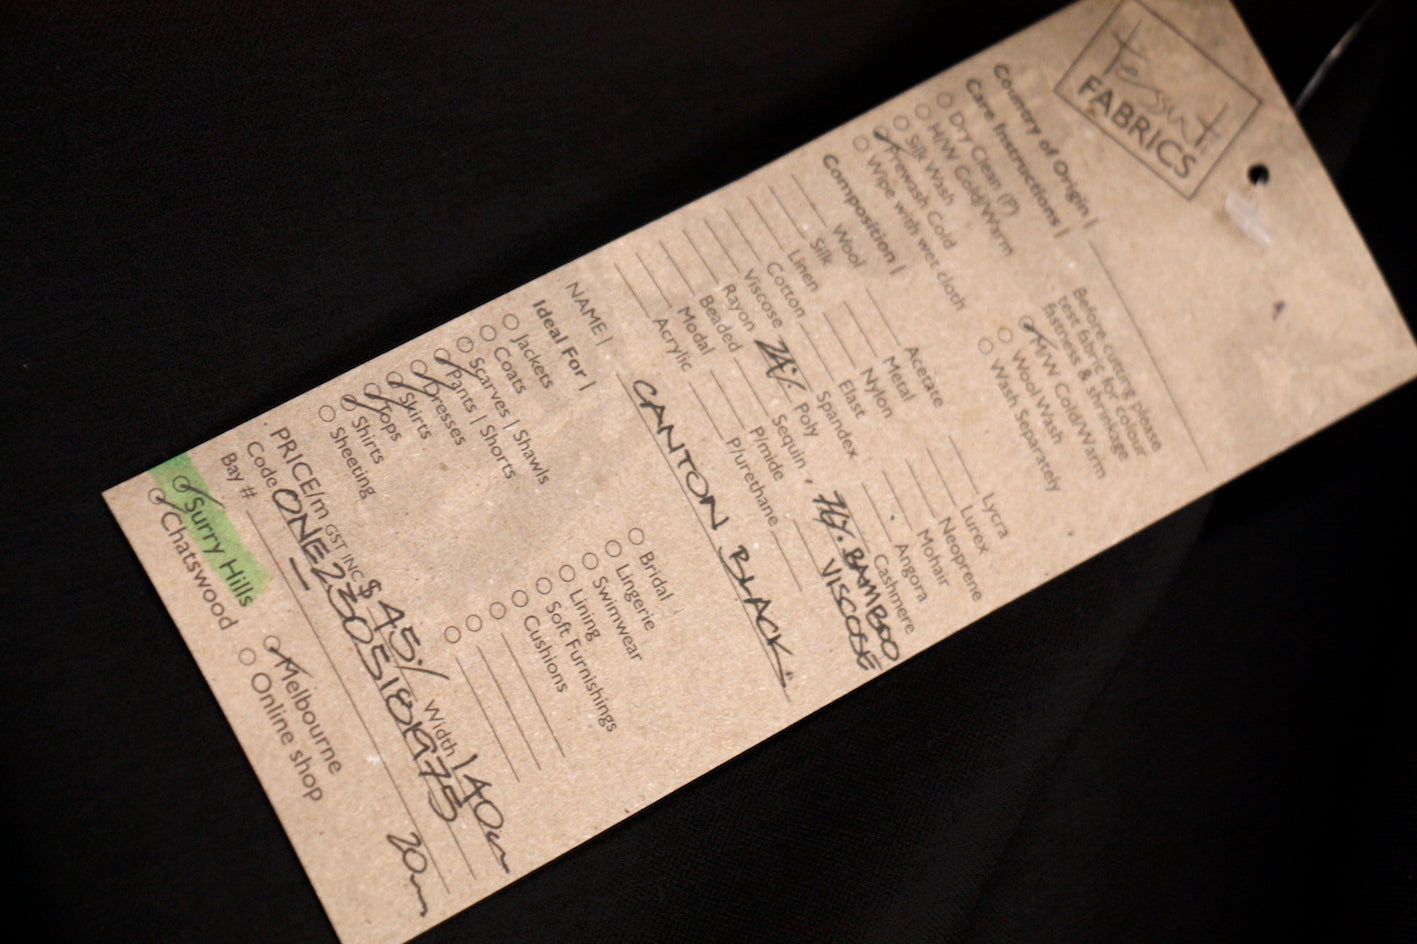 tessuti
FABRICS
Country of Origin |
Care Instructions |
Dry Clean (P)
H/W Cold/Warm
Silk Wash
Prewash Cold
Wipe with wet cloth
Before cutting please
test fabric for colour
fastness & shrinkage
M/W Cold/Warm
Wool Wash
Wash Separately
Composition |
Wool
Silk
Linen
Cotton
Viscose
Rayon
Beaded
Modal
Acrylic
Acetate
Metal
Nylon
Elast
Spandex
24% Poly
Sequin
P/mide
P/urethane
Lycra
Lurex
Neoprene
Mohair
Angora
Cashmere
76% BAMBOO
VISCOSE
NAME | CANTON BLACK
Ideal For |
Jackets
Coats
Scarves | Shawls
Pants | Shorts
Dresses
Skirts
Tops
Shirts
Sheeting
Bridal
Lingerie
Swimwear
Lining
Soft Furnishings
Cushions
PRICE/m GST INC $45./ Width 140cm
Code ONE23051801975
Bay # 20m
Surry Hills
Chatswood
Melbourne
Online shop